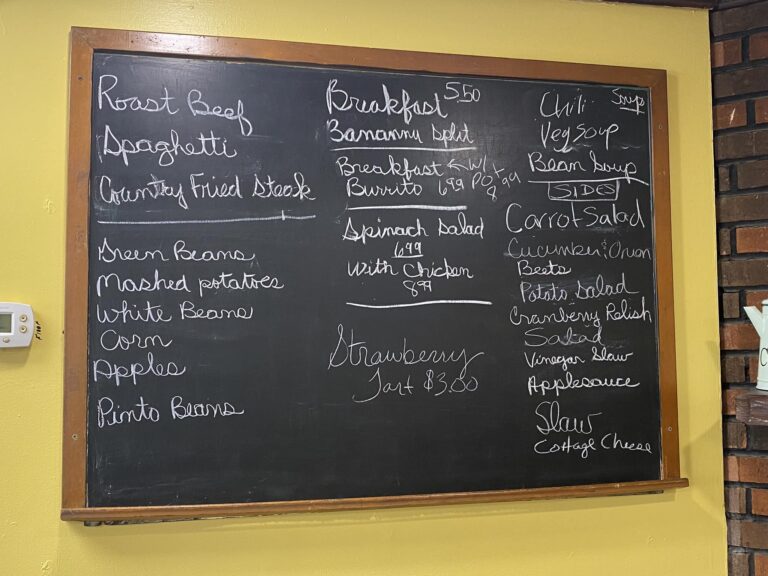 Roast Beef
Spaghetti
Country Fried Steak
Green Beans
Mashed potatoes
White Beans
Corn
Apples
Pinto Beans
Breakfast 5.50
Bananna Split
Breakfast ← W/
Burrito 6.99 POT 8.99
Spinach Salad
6.99
With Chicken
8.99
Strawberry
Tart $3.00
Soup
Chili
Veg Soup
Bean Soup
SIDES
Carrot Salad
Cucumber & Onion
Beets
Potato Salad
Cranberry Relish
Salad
Vinegar Slaw
Applesauce
Slaw
Cottage Cheese